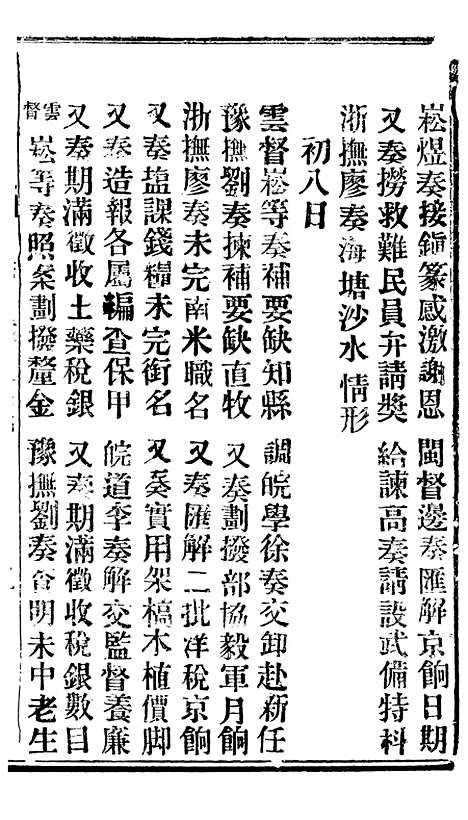 崧煜奏接鎭篆感激謝恩　閩督邊奏匯解京餉日期
又奏撈救難民員弁請獎　給諫高奏請設武備特科
浙撫廖奏海塘沙水情形
初八日
雲督崧等奏補要缺知縣　調皖學徐奏交卸赴新任
豫撫劉奏揀補要缺直牧　又奏劃撥部協毅軍月餉
浙撫廖奏未完南米職名　又奏匯解二批洋稅京餉
又奏塩課錢糧未完銜名　又奏實用架槁木植價脚
又奏造報各屬編查保甲　皖道李奏解交監督養廉
又奏期滿徵收土藥稅銀　又奏期滿徵收稅銀數目
雲督崧等奏照案劃撥釐金　豫撫劉奏查明未中老生